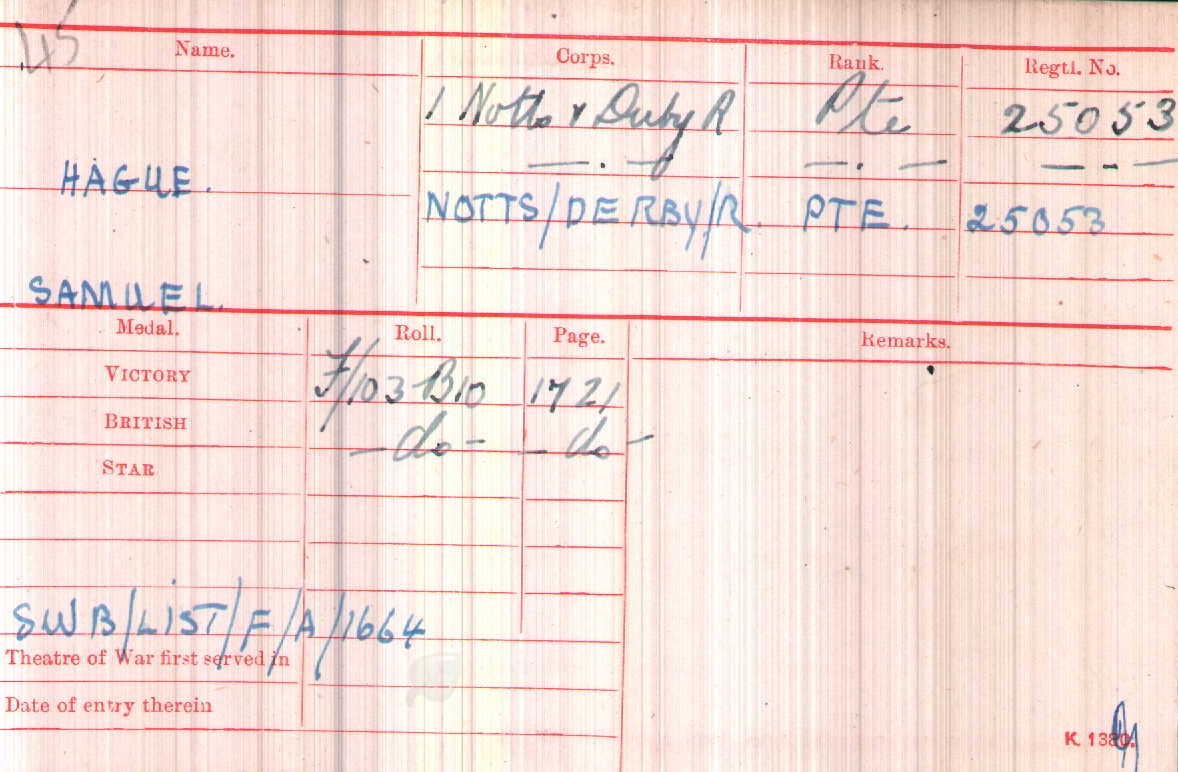 45
Name. Corps. Rank. Regtl. No.
1 Notts & Derby R Pte 25053
— . — — . — — - —
HAGUE. NOTTS/DERBY/R. PTE. 25053
SAMUEL.
Medal. Roll. Page. Remarks.
VICTORY F/103 B10 1721
BRITISH — do — — do —
STAR
SWB/LIST/F/A/1664
Theatre of War first served in
Date of entry therein
K. 1380.